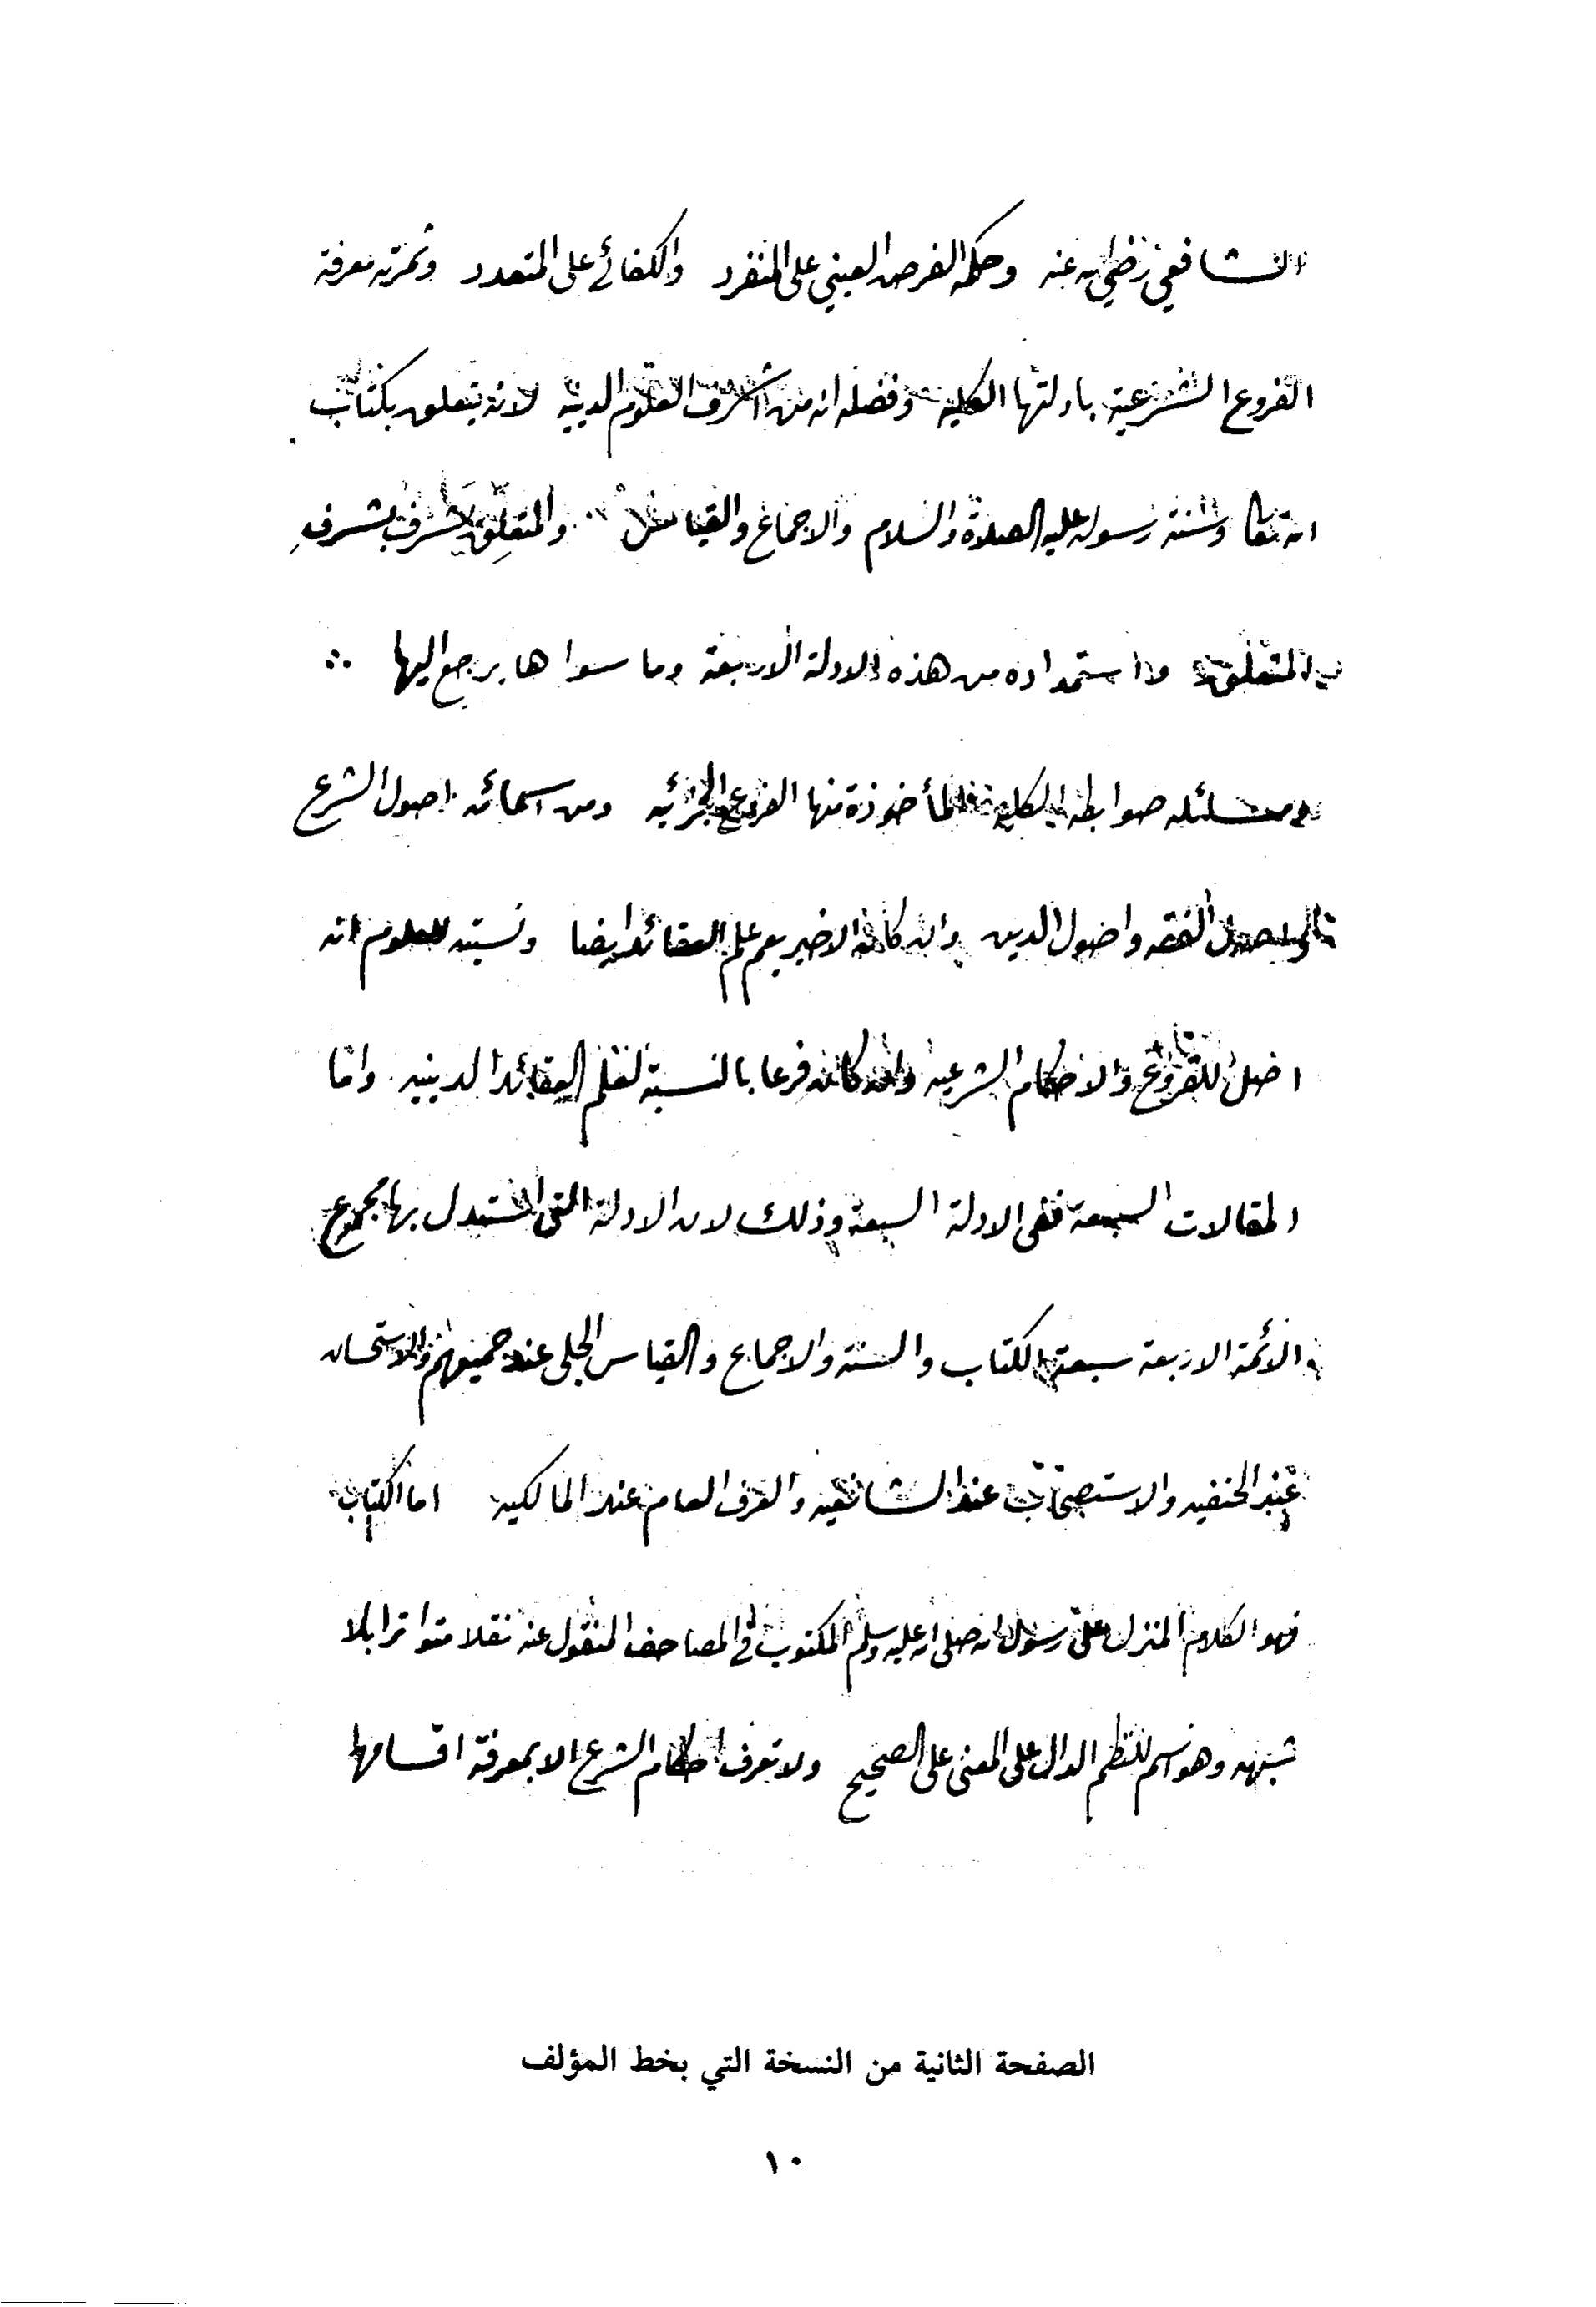 الشافعي رضي الله عنه وحكمه الفرض العيني على المنفرد والكفائي على المتعدد وثمرته معرفة
الفروع الشرعية بادلتها الكلية وفضله انه من اشرف العلوم الدينيه لانه يتعلق بكتاب
الله تعالى وسنة رسوله عليه الصلاة والسلام والاجماع والقياس والمتعلق يشرف بشرف
المتعلق واستمداده من هذه الادلة الاربعة وما سواها يرجع اليها
ومسائله ضوابطه الكلية المأخوذة منها الفروع الجزئيه ومن اسمائه اصول الشرع
واصول الفقه واصول الدين وان كان الاخير يعم علم العقائد ايضا ونسبته للعلوم انه
اصل للفروع والاحكام الشرعيه وان كان فرعا بالنسبة لعلم العقائد الدينيه واما
المقالات السبعة ففى الادلة السبعة وذلك لان الادلة التى استدل بها مجموع
الائمة الاربعة سبعة الكتاب والسنة والاجماع والقياس الجلى عند جميعهم والاستحسان
عند الحنفيه والاستصحاب عند الشافعيه والعرف العام عند المالكيه اما الكتاب
فهو الكلام المنزل على رسول الله صلى الله عليه وسلم المكتوب في المصاحف المنقول عنه نقلا متواترا بلا
شبهه وهو اسم للنظم الدال على المعنى على الصحيح ولا تعرف احكام الشرع الا بمعرفة اقسامها
الصفحة الثانية من النسخة التي بخط المؤلف
١٠